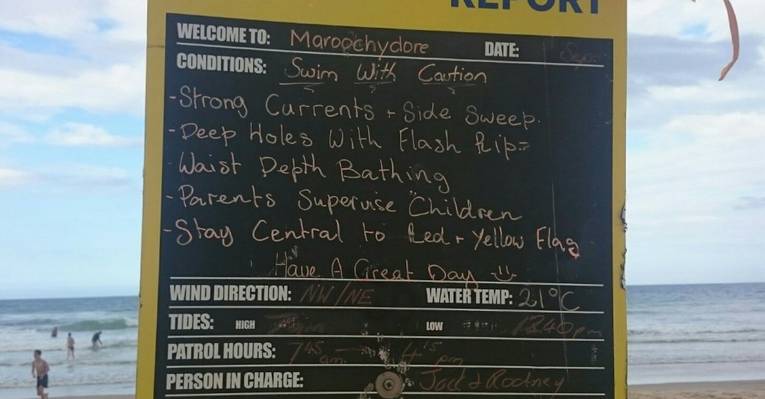 REPORT
WELCOME TO: Maroochydore DATE:
CONDITIONS: Swim With Caution
- Strong Currents + Side Sweep.
- Deep Holes With Flash Rips
- Waist Depth Bathing
- Parents Supervise Children
- Stay Central to Red + Yellow Flag
Have A Great Day
WIND DIRECTION: NW/NE WATER TEMP: 21°C
TIDES: HIGH LOW
PATROL HOURS: 7 45 am - 4 15 pm
PERSON IN CHARGE: Jod & Rodney